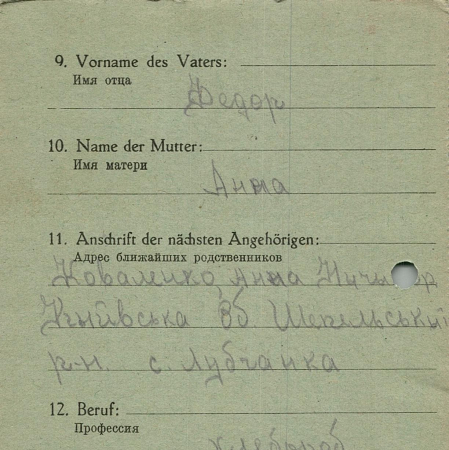 9. Vorname des Vaters:
Имя отца
Федор
10. Name der Mutter:
Имя матери
Анна
11. Anschrift der nächsten Angehörigen:
Адрес ближайших родственников
Коваленко Анна
Кыйвська Об.
р-н. с. Лубчанка
12. Beruf:
Профессия
хлебороб